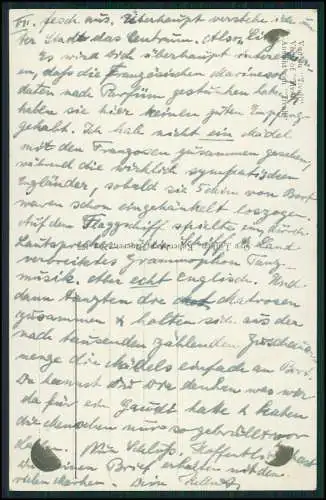 fesch aus. Überhaupt verstehe ich un
ter Stadt das Centrum. Also
Es wird dich überhaupt interessie
ren, dass die Französischen Marinesol
daten nach Parfüm gestunken haben
haben sie hier keinen guten Empfang
gehabt. Ich hab nicht ein Mädel
mit den Franzosen zusammen gesehen,
während die wirklich sympatischen
Engländer, sobald sie von Boot
waren schon eingehänkelt loszogen.
Auf dem Flaggschiff spielte ein, durch
Lautsprecher Land
verbreitetes Grammophon Tanz-
musik. Aber echt Englisch. Und
dann tanzten die Matrosen
zusammen & holten sich aus der
nach tausenden zählenden Zuschauer
menge die Mädels einfach an Bort.
Du kannst dir vor denken was wir
da für ein Gaudi hatte & haben
die Menschen nur so gebrüllt vor
Lachen. Nun Schluß. Hoffentlich hast
du einen Brief erhalten mit den
vielen Marken. Dein